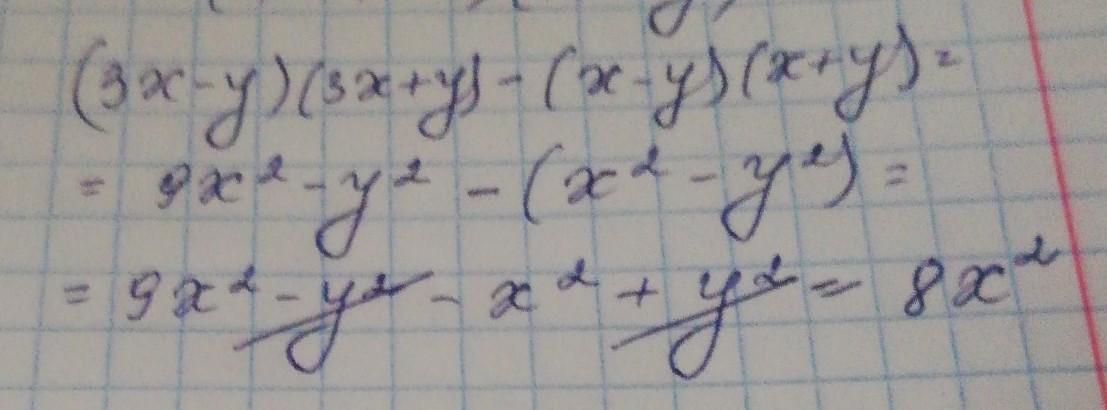 (3x-y)(3x+y)-(x-y)(x+y)=
= 9x²-y² -(x²-y²)=
= 9x²-y²-x²+y²= 8x²